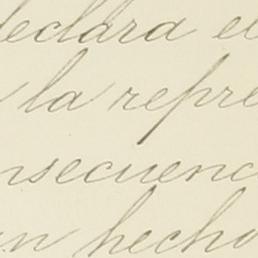 declara el
la repre
nsecuenc
un hecho